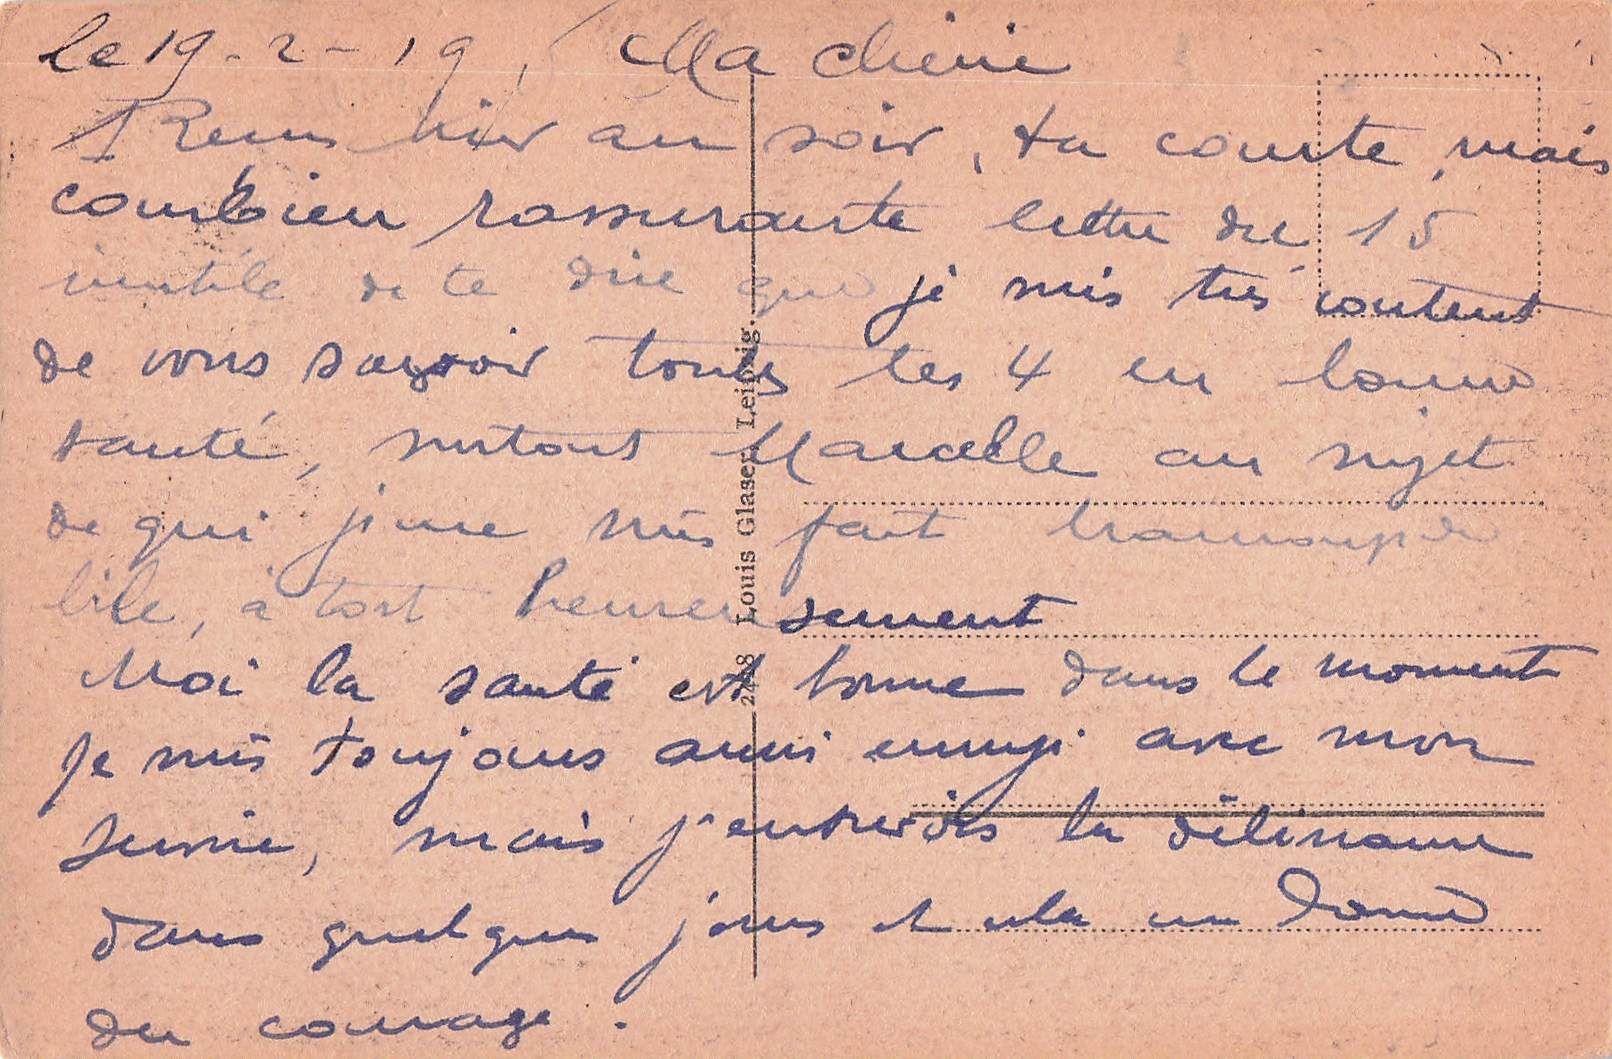 Le 19-2-19, Ma chérie
1 Reçus hier au soir, ta courte, mais
combien rassurante lettre du 15
inutile de te dire que je suis très content
de vous savoir toutes les 4 en bonne
santé, surtout Marcelle au sujet
de qui je me suis fait beaucoup de
bile, à tort heureusement
Moi la santé est bonne dans le moment
Je suis toujours aussi ennuyé avec mon
mais j'entrevois la délivrance
dans quelques jours et cela me donne
du courage.
2448 Louis Glaser, Leipzig.